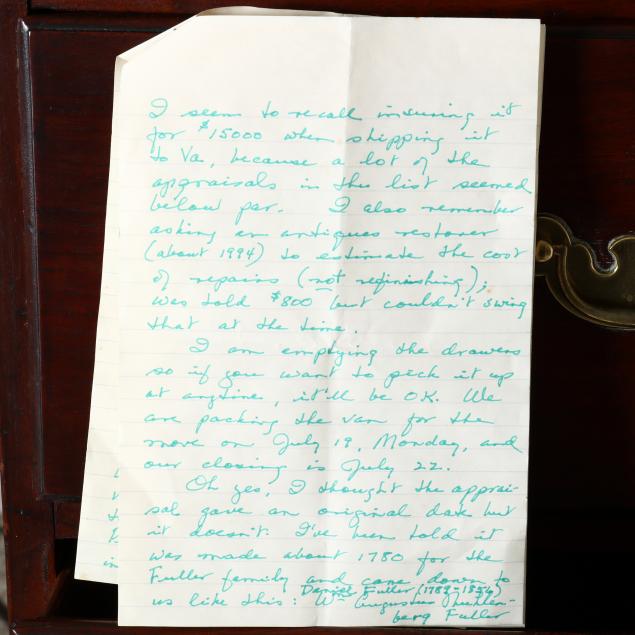 I seem to recall insuring it
for $15000 when shipping it
to Va, because a lot of the
appraisals in this list seemed
below par. I also remember
asking an antiques restorer
(about 1994) to estimate the cost
of repairs (not refinishing);
was told $800 but couldn't swing
that at the time.
I am emptying the drawers
so if you want to pick it up
at anytime, it'll be OK. We
are packing the van for the
move on July 19, Monday, and
our closing is July 22.
Oh yes, I thought the apprai-
sal gave an original date but
it doesn't. I've been told it
was made about 1780 for the
Fuller family and came down to
Daniel Fuller (1783-1856)
us like this: Wm Augustus Muhlen-
berg Fuller